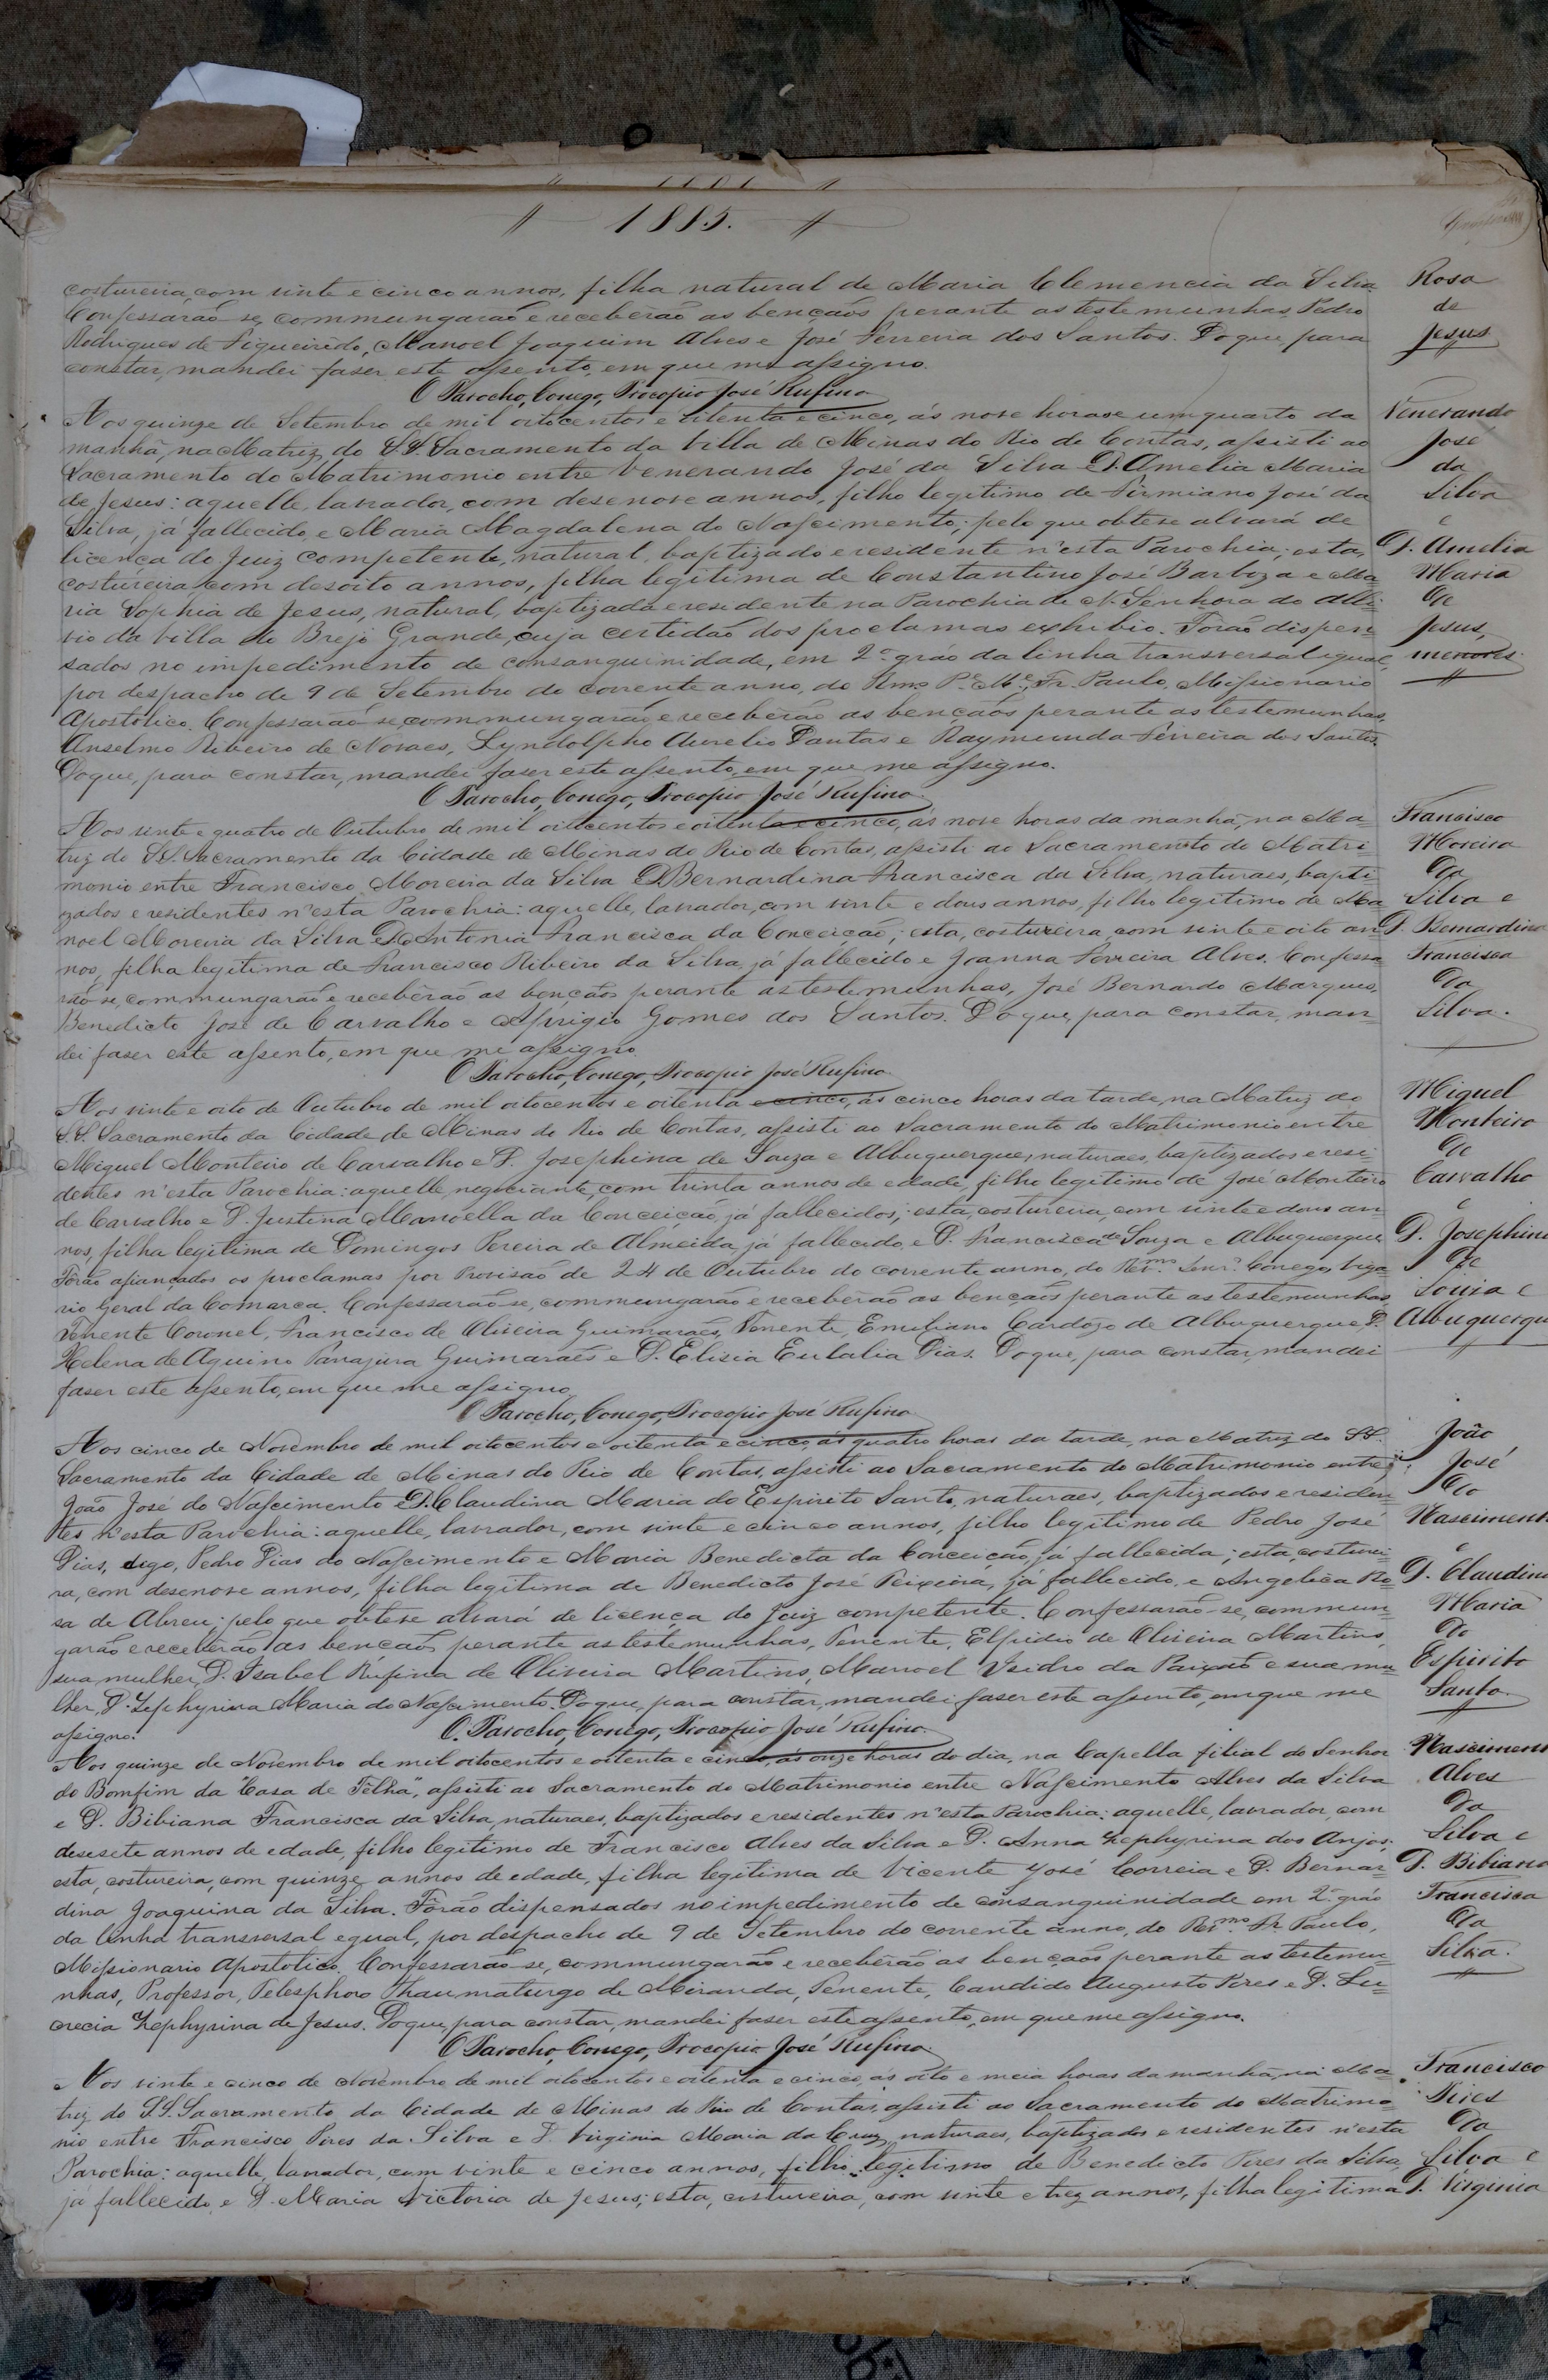 1885.
costureira, com vinte e cinco annos, filha natural de Maria Clemencia da Silva
Confessarão-se, commungarão e receberão as bençãos perante as testemunhas, Pedro
Rodrigues de Figueirêdo, Manoel Joaquim Alves e José Ferreira dos Santos. Do que, para
constar, mandei faser este assento, em que me assigno.
O Parocho, Conego, Procopio José Rufino
Rosa
de
Jesus
Aos quinze de Setembro de mil oitocentos e oitenta e cinco, ás nove horas e um quarto da
manhã, na Matriz do S.S. Sacramento da Villa de Minas do Rio de Contas, assisti ao
Sacramento do Matrimonio entre Venerando José da Silva e D. Amelia Maria
de Jesus: aquelle, lavrador, com desenove annos, filho legitimo de Firmiano José da
Silva, já fallecido, e Maria Magdalena do Nascimento; pelo que obteve alvará de
licença do Juiz competente, natural, baptizado e residente n'esta Parochia; esta,
costureira, com desoito annos, filha legitima de Constantino José Barboza e Ma-
ria Sophia de Jesus, natural, baptizada e residente na Parochia de N. Senhora do Alli-
vio da Villa do Brejo Grande, cuja certidão dos proclamas exhibio. Forão dispen-
sados no impedimento de consanguinidade, em 2º gráo da linha transversal egual,
por despacho de 9 de Setembro do corrente anno, do Rmo Pe. Me. Fr. Paulo, Missionario
Apostolico. Confessarão-se, commungarão e receberão as bençãos perante as testemunhas,
Anselmo Ribeiro de Novaes, Lyndolpho Aurelio Dantas e Raymunda Ferreira dos Santos.
Do que, para constar, mandei faser este assento, em que me assigno.
O Parocho, Conego, Procopio José Rufino.
Venerando
José
da
Silva
e
D. Amelia
Maria
de
Jesus,
menores.
Aos vinte e quatro de Outubro de mil oitocentos e oitenta e cinco, ás nove horas da manhã, na Ma-
triz do S.S. Sacramento da Cidade de Minas do Rio de Contas, assisti ao Sacramento do Matri-
monio entre Francisco Moreira da Silva e D. Bernardina Francisca da Silva, naturaes, bapti-
zados e residentes n'esta Parochia: aquelle, lavrador, com vinte e dous annos, filho legitimo de Ma-
noel Moreira da Silva e D. Antonia Francisca da Conceição; esta, costureira, com vinte e oito an-
nos, filha legitima de Francisco Ribeiro da Silva, já fallecido e Joanna Ferreira Alves. Confessa-
rão-se, commungarão e receberão as bençãos perante as testemunhas, José Bernardo Marques,
Benedicto José de Carvalho e Aprigio Gomes dos Santos. Do que, para constar, man-
dei faser este assento, em que me assigno.
O Parocho, Conego, Procopio José Rufino.
Francisco
Moreira
da
Silva e
D. Bernardina
Francisca
da
Silva.
Aos vinte e oito de Outubro de mil oitocentos e oitenta e cinco, ás cinco horas da tarde, na Matriz do
S.S. Sacramento da Cidade de Minas do Rio de Contas, assisti ao Sacramento do Matrimonio entre
Miguel Monteiro de Carvalho e D. Josephina de Souza e Albuquerque, naturaes, baptizados e resi-
dentes n'esta Parochia: aquelle, negociante, com trinta annos de edade, filho legitimo de José Monteiro
de Carvalho e D. Justina Manoella da Conceição, já fallecidos; esta, costureira, com vinte e dous an-
nos, filha legitima de Domingos Pereira de Almeida, já fallecido, e D. Francisca de Souza e Albuquerque
Forão afiançados os proclamas por Provisão de 24 de Outubro do corrente anno, do Revmo. Senr. Conego, Viga-
rio Geral da Comarca. Confessarão-se, commungarão e receberão as bençãos perante as testemunhas,
Tenente Coronel, Francisco de Oliveira Guimarães, Tenente, Emiliano Cardozo de Albuquerque, D.
Helena de Aquino Guimarães e D. Elisia Eulalia Dias. Do que, para constar, mandei
faser este assento, em que me assigno.
O Parocho, Conego, Procopio José Rufino
Miguel
Monteiro
de
Carvalho
e
D. Josephina
de
Souza e
Albuquerque
Aos cinco de Novembro de mil oitocentos e oitenta e cinco, ás quatro horas da tarde, na Matriz do S.S.
Sacramento da Cidade de Minas do Rio de Contas, assisti ao Sacramento do Matrimonio entre
João José do Nascimento e D. Claudina Maria do Espirito Santo, naturaes, baptizados e residen-
tes n'esta Parochia: aquelle, lavrador, com vinte e cinco annos, filho legitimo de Pedro José
Dias, digo, Pedro Dias do Nascimento e Maria Benedicta da Conceição, já fallecida; esta, costurei-
ra, com desenove annos, filha legitima de Benedicto José Teixeira, já fallecido, e Angelica Ro-
sa de Abreu; pelo que obteve alvará de licença do Juiz competente. Confessarão-se, commun-
garão e receberão as bençãos perante as testemunhas, Tenente, Elpidio de Oliveira Martins,
sua mulher, D. Isabel Rufina de Oliveira Martins, Manoel Isidro da Paixão e sua mu-
lher, D. Zephyrina Maria do Nascimento. Do que, para constar, mandei faser este assento, em que me
assigno.
O Parocho, Conego, Procopio José Rufino.
João
José
do
Nascimento
e
D. Claudina
Maria
do
Espirito
Santo.
Aos quinze de Novembro de mil oitocentos e oitenta e cinco, ás onze horas do dia, na Capella filial do Senhor
do Bomfim da "Casa de Telha", assisti ao Sacramento do Matrimonio entre Nascimento Alves da Silva
e D. Bibiana Francisca da Silva, naturaes, baptizados e residentes n'esta Parochia: aquelle, lavrador, com
desesete annos de edade, filho legitimo de Francisco Alves da Silva e D. Anna Zephyrina dos Anjos;
esta, costureira, com quinze annos de edade, filha legitima de Vicente José Correia e D. Bernar-
dina Joaquina da Silva. Forão dispensados no impedimento de consanguinidade em 2º gráo
da linha transversal egual, por despacho de 9 de Setembro do corrente anno, do Revmo. Fr. Paulo,
Missionario Apostolico. Confessarão-se, commungarão e receberão as bençãos perante as testemu-
nhas, Professor, Telesphoro Thaumaturgo de Miranda, Tenente, Candido Augusto Pires e D. Lu-
crecia Zephyrina de Jesus. Do que, para constar, mandei faser este assento, em que me assigno.
O Parocho, Conego, Procopio José Rufino.
Nascimento
Alves
da
Silva e
D. Bibiana
Francisca
da
Silva.
Aos vinte e cinco de Novembro de mil oitocentos e oitenta e cinco, ás oito e meia horas da manhã, na Ma-
triz do S.S. Sacramento da Cidade de Minas do Rio de Contas, assisti ao Sacramento do Matrimo-
nio entre Francisco Pires da Silva e D. Virginia Maria da Cruz, naturaes, baptizados e residentes n'esta
Parochia: aquelle, lavrador, com vinte e cinco annos, filho legitimo de Benedicto Pires da Silva,
já fallecido, e D. Maria Victoria de Jesus; esta, costureira, com vinte e trez annos, filha legitima
Francisco
Pires
da
Silva e
D. Virginia